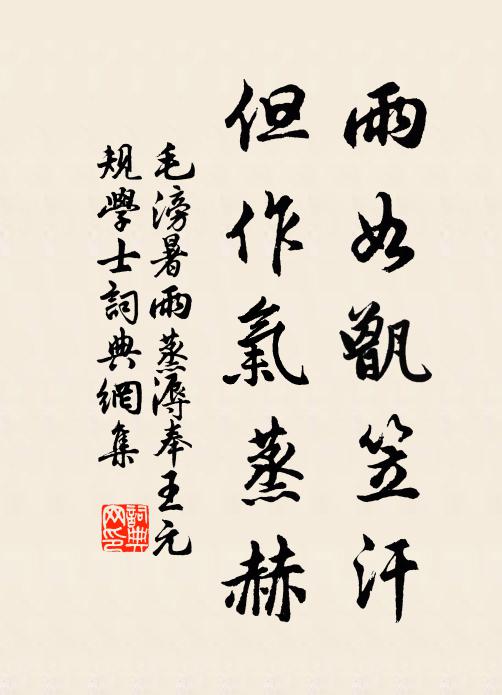 雨如甑笠汗
但作氣蒸赫
毛滂暑雨蒸溽奉王元
規學士詞典網集
詞典
网印